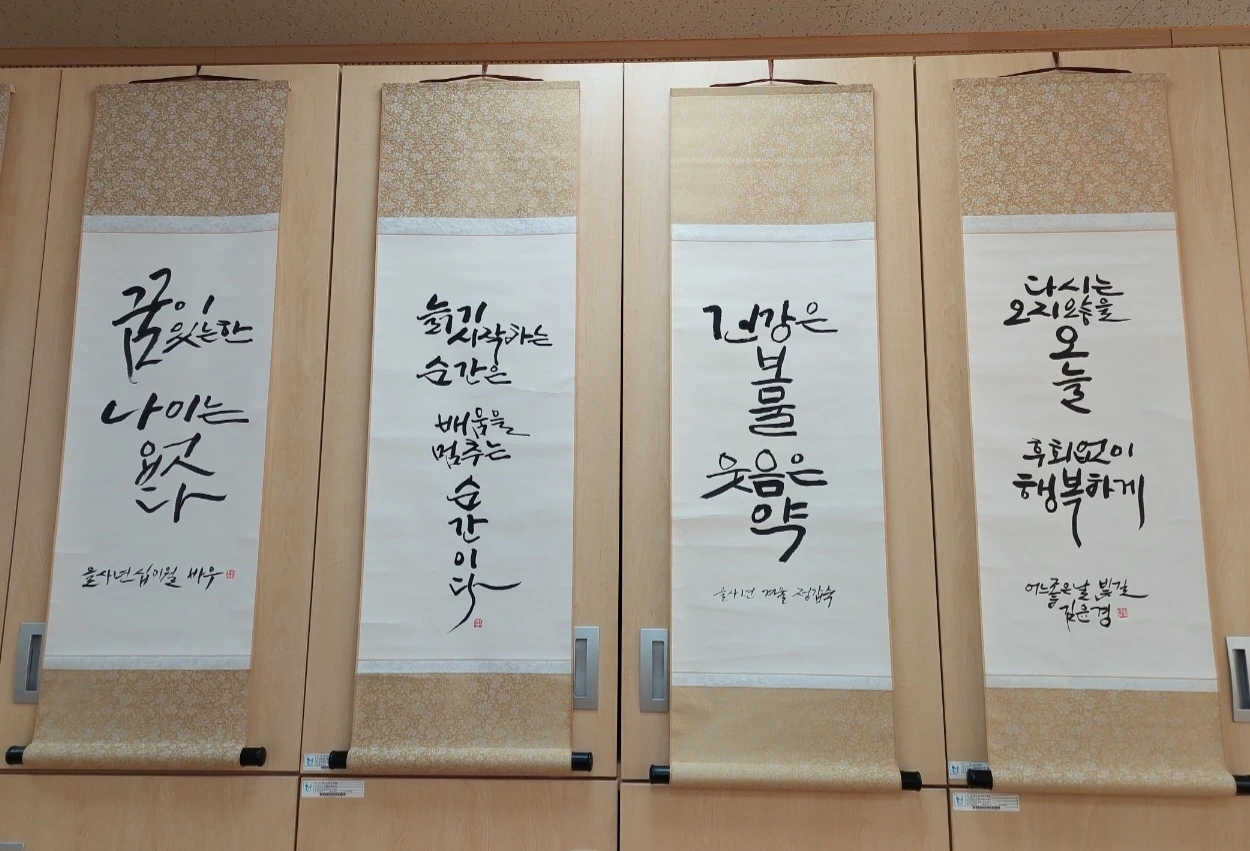 꿈이
있는한
나이는
없
다
을사년 십이월 바우
늙기
시작하는
순간은
배움을
멈추는
순
간
이
다
건강은
보
물
웃음은
약
을사년 겨울 정갑숙
다시는
오지않을
오
늘
후회없이
행복하게
어느좋은날 빛길
김윤경